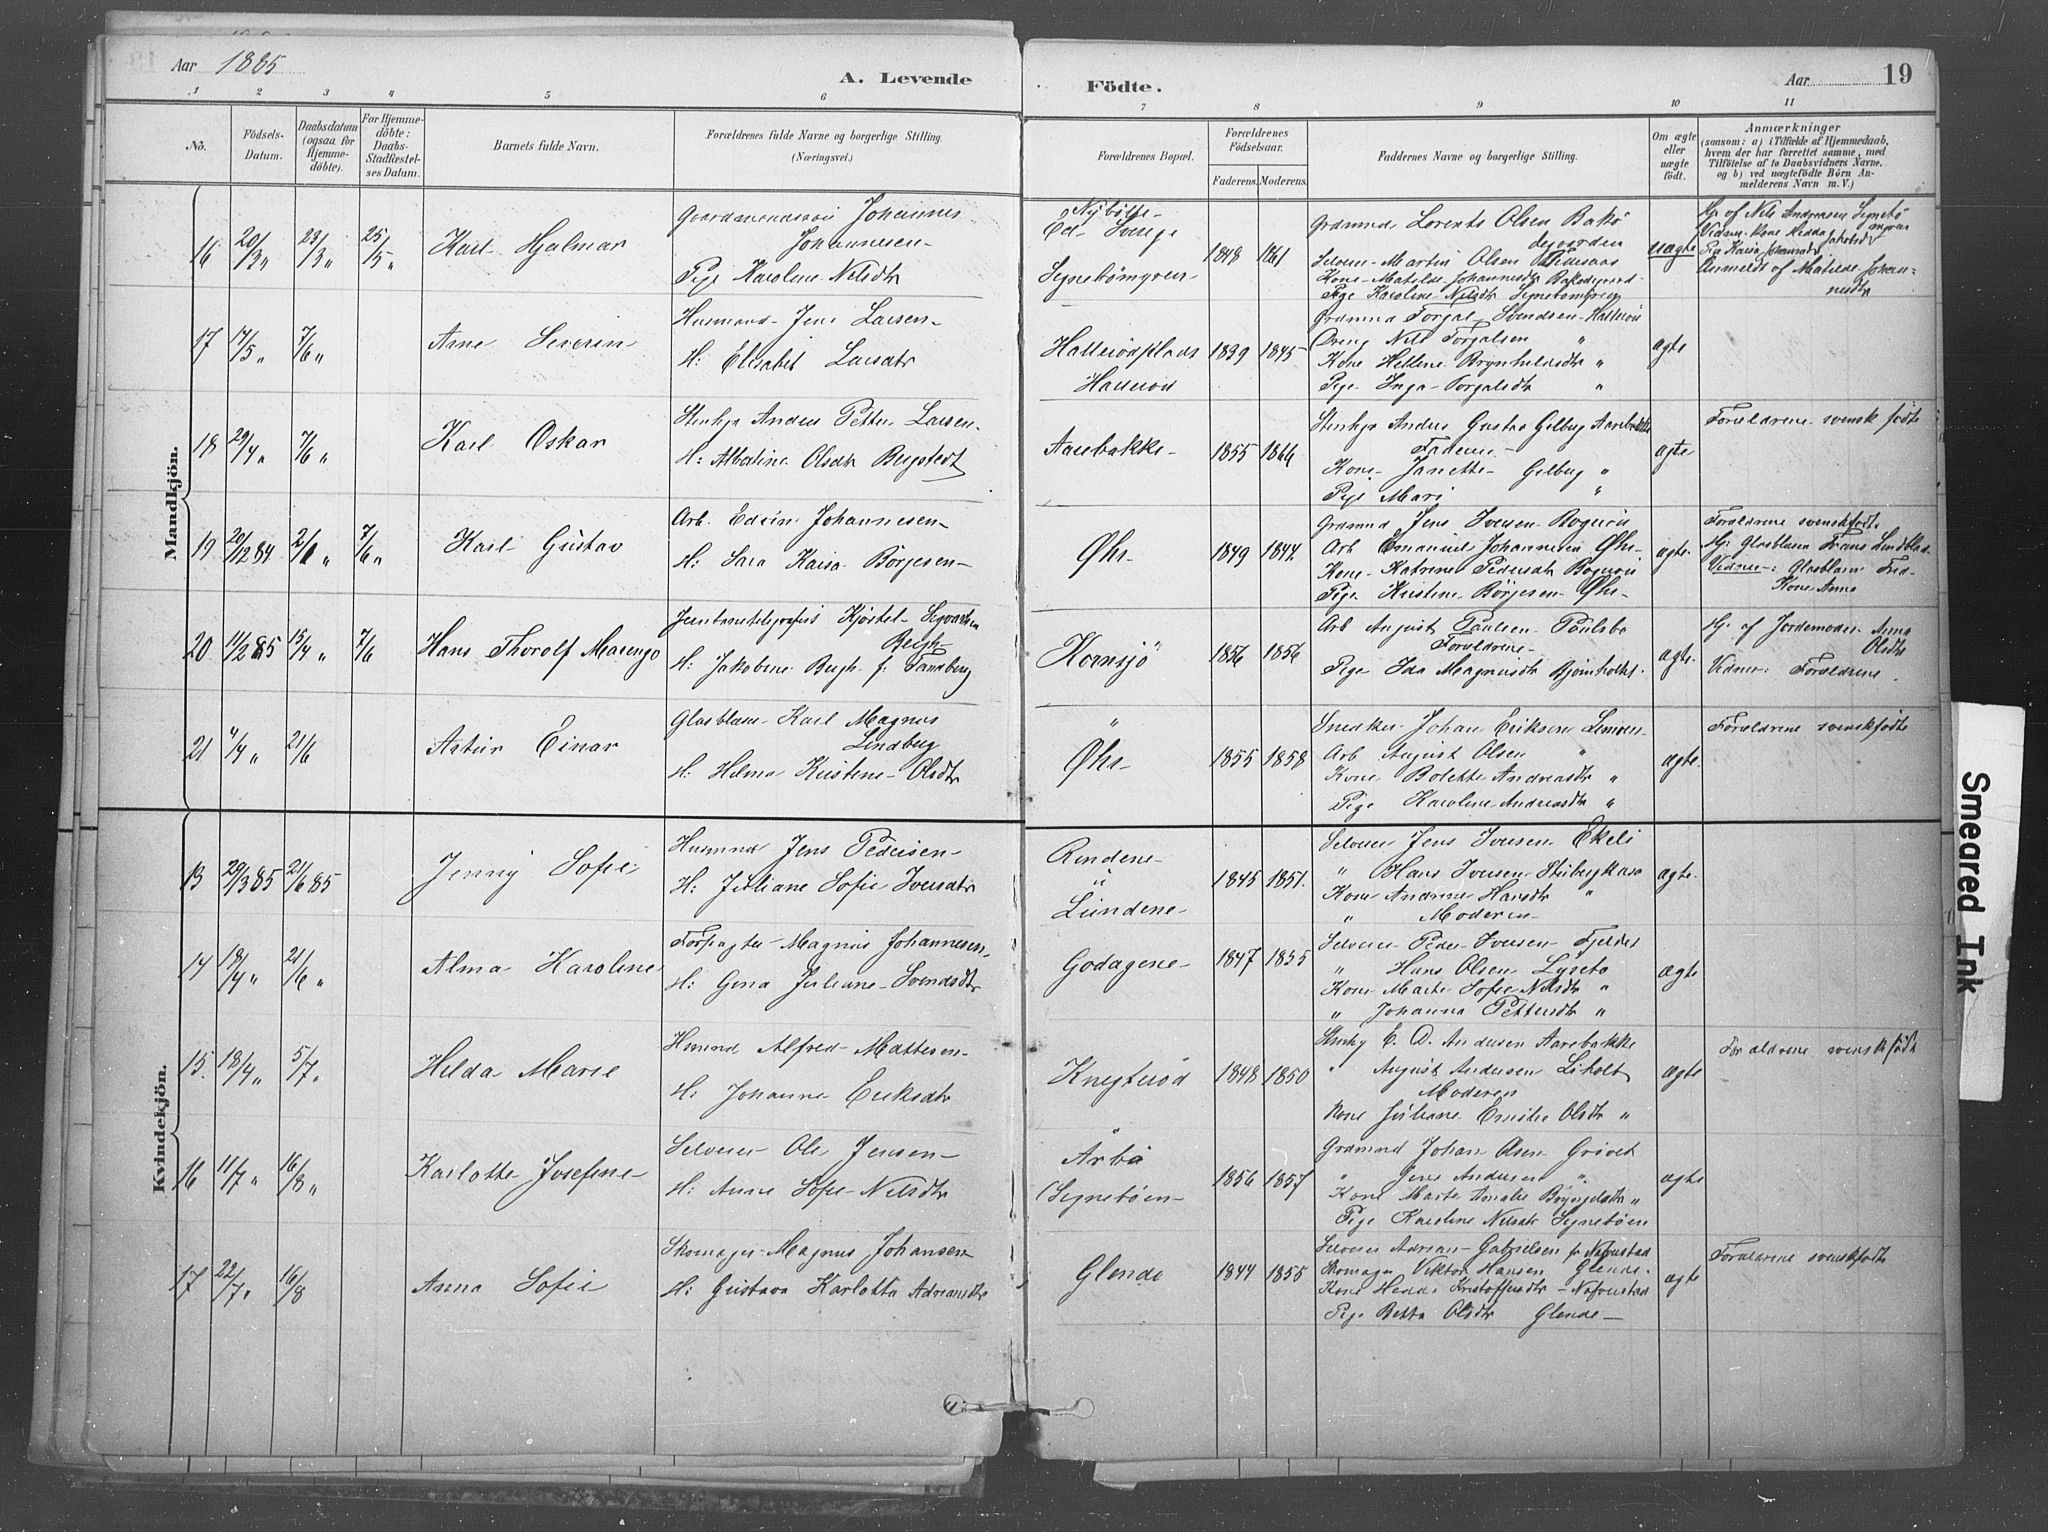 Aar 1885
A. Levende
Födte.
Aar
19
1 2 3 4 5 6 7 8 9 10 11
No.
Födsels-
Datum.
Daabsdatum
(ogsaa for
Hjemme-
döbte).
For Hjemme-
döbte:
Daabs-
Stadfæstel-
ses Datum.
Barnets fulde Navn.
Forældrenes fulde Navne og borgerlige Stilling.
(Næringsvei.)
Forældrenes Bopæl.
Forældrenes
Födselsaar.
Faderens. Moderens.
Faddernes Navne og borgerlige Stilling.
Om ægte
eller
uægte
födt.
Anmærkninger
(saasom: a) i Tilfælde af Hjemmedaab,
hvem der har forrettet samme, med
Tilföielse af to Daabsvidners Navne,
og b) ved uægtefödte Börn An-
melderens Navn m. V.)
Mandkjön.
16 20/3 " 23/3 " 25/5 " Karl Hjalmar
Johannes
Johannesen
Pige Karoline Nilsdtr
Ed Sverige
Segnebömyren
1848 1861
Grdmnd Lorents Olsen Bakö
degaarden
Selveier Martin Olsen
Kone Matilde Johannesdtr
Pige Karoline Nilsdtr Segnebömyren
uægte
Hj. af Nils Andreasen Segnebö
myren
Vidner Kone Hedda Jakobsdtr
Anmeldt af Matilde Johan-
nesdtr
17 14/5 " 7/6 " Arne Severin
Husmand Jens Larsen
H: Elisabet Larsdtr
Halleröd
1839 1845
Grdmnd Torgal Svendsen Halleröd
Dreng Nils Torgalsen "
Kone Hellene Brynhildsdtr "
Pige Inga Torgalsdtr "
ægte
18 29/4 " 7/6 " Karl Oskar
Stenhgr Anders Petter Larsen
H: Albertine Olsdtr Bergstedt
Aarebakke
1855 1866
Stenhgr Anders Gustav Gelberg Aarebakke
Faderen
Kone Janette Gelberg "
Pige Mari "
ægte
Forældrene svensk födte
19 20/12 84 2/1 " 7/6 " Karl Gustav
Arb. Edvin Johannesen
H: Sara Kaisa Börjesen
Øhr
1849 1847
Grdmnd Jens Iversen Bogeröd
Arb Emanuel Johannesen Øhr
Kone Katrine Pedersdtr Bogeröd
Pige Kristine Börjesen Øhr
ægte
Forældrene svenskfödte
Hj: Glasblaser Frans Lindblad
Vidner: Glasblaser
Kone Anna
20 11/2 85 15/4 " 7/6 Hans Thorolf Marengo
Jernbanetelegrafist Kjöstel
Bergh
H: Jakobine Bergh f. Sandberg
Kornsjö
1856 1856
Arb August Paulsen Paulsbo
Forældrene
Pige Ida Magnusdtr Björnholtet
ægte
Hj. af Jordemoder Anna
Olsdtr
Vidner: Forældrene
21 4/4 " 21/6 Artur Einar
Glasblaser Karl Magnus
Lindberg
H: Hilma Kristine Olsdtr
"
Øhr
1855 1858
Snedker Johan Eriksen
Arb August Olsen "
Kone Bolette Andreasdtr "
Pige Karoline Andreasdtr "
ægte
Forældrene svenskfödte
Kvindekjön.
13 29/3 85 21/6 85 Jenny Sofie
Husmnd Jens Pedersen
H: Juliane Sofie Iversdtr
Rendene
u
Lundene
1845 1851
Selveier Jens Iversen Ekeli
" Hans Iversen Stubergkasa
Kone Andrine Hansdtr "
" Moderen
ægte
14 18/4 " 21/6 " Alma Karoline
Forpagter Magnus Johannesen
H: Gina Juliane Svendsdtr
Godagene
1847 1855
Selveier Peder Iversen Fjeldet
" Hans Olsen Lyseto
Kone Marte Sofie Nilsdtr "
" Johanna Pettersdtr "
ægte
15. 18/4 " 5/7 " Hilda Marie
Husmnd Alfred Mattesen
H: Johanne Eriksdtr
Knegteröd
1848 1850
Stenhg E. D. Andersen Aarebakke
" August Andersen Liholt
Moderen
Kone Juliane Emilie Olsdtr "
ægte
Forældrene svenskfödt
16 11/7 " 16/8 " Karlotte Josefine
Selveier Ole Jensen
H: Anne Sofie Nilsdtr
Årbö
Segneböen
1856 1857
Grdmnd Johan Olsen Grövet
" Jens Andersen "
Kone Marte Amalie Brynjelsdtr "
Pige Karoline Nilsdtr Segneböen
ægte
17 22/7 " 16/8 Anna Sofie
Skomager Magnus Johansen
H: Gustava Karlotta Adriansdtr
Glende
1844 1855
Selveier Adrian Gabrielsen
Skomager Viktor Hansen Glende
Kone Hedda Kristoffersdtr
Pige Betta Olsdtr Glende
ægte
Forældrene svenskfödte
Smeared Ink